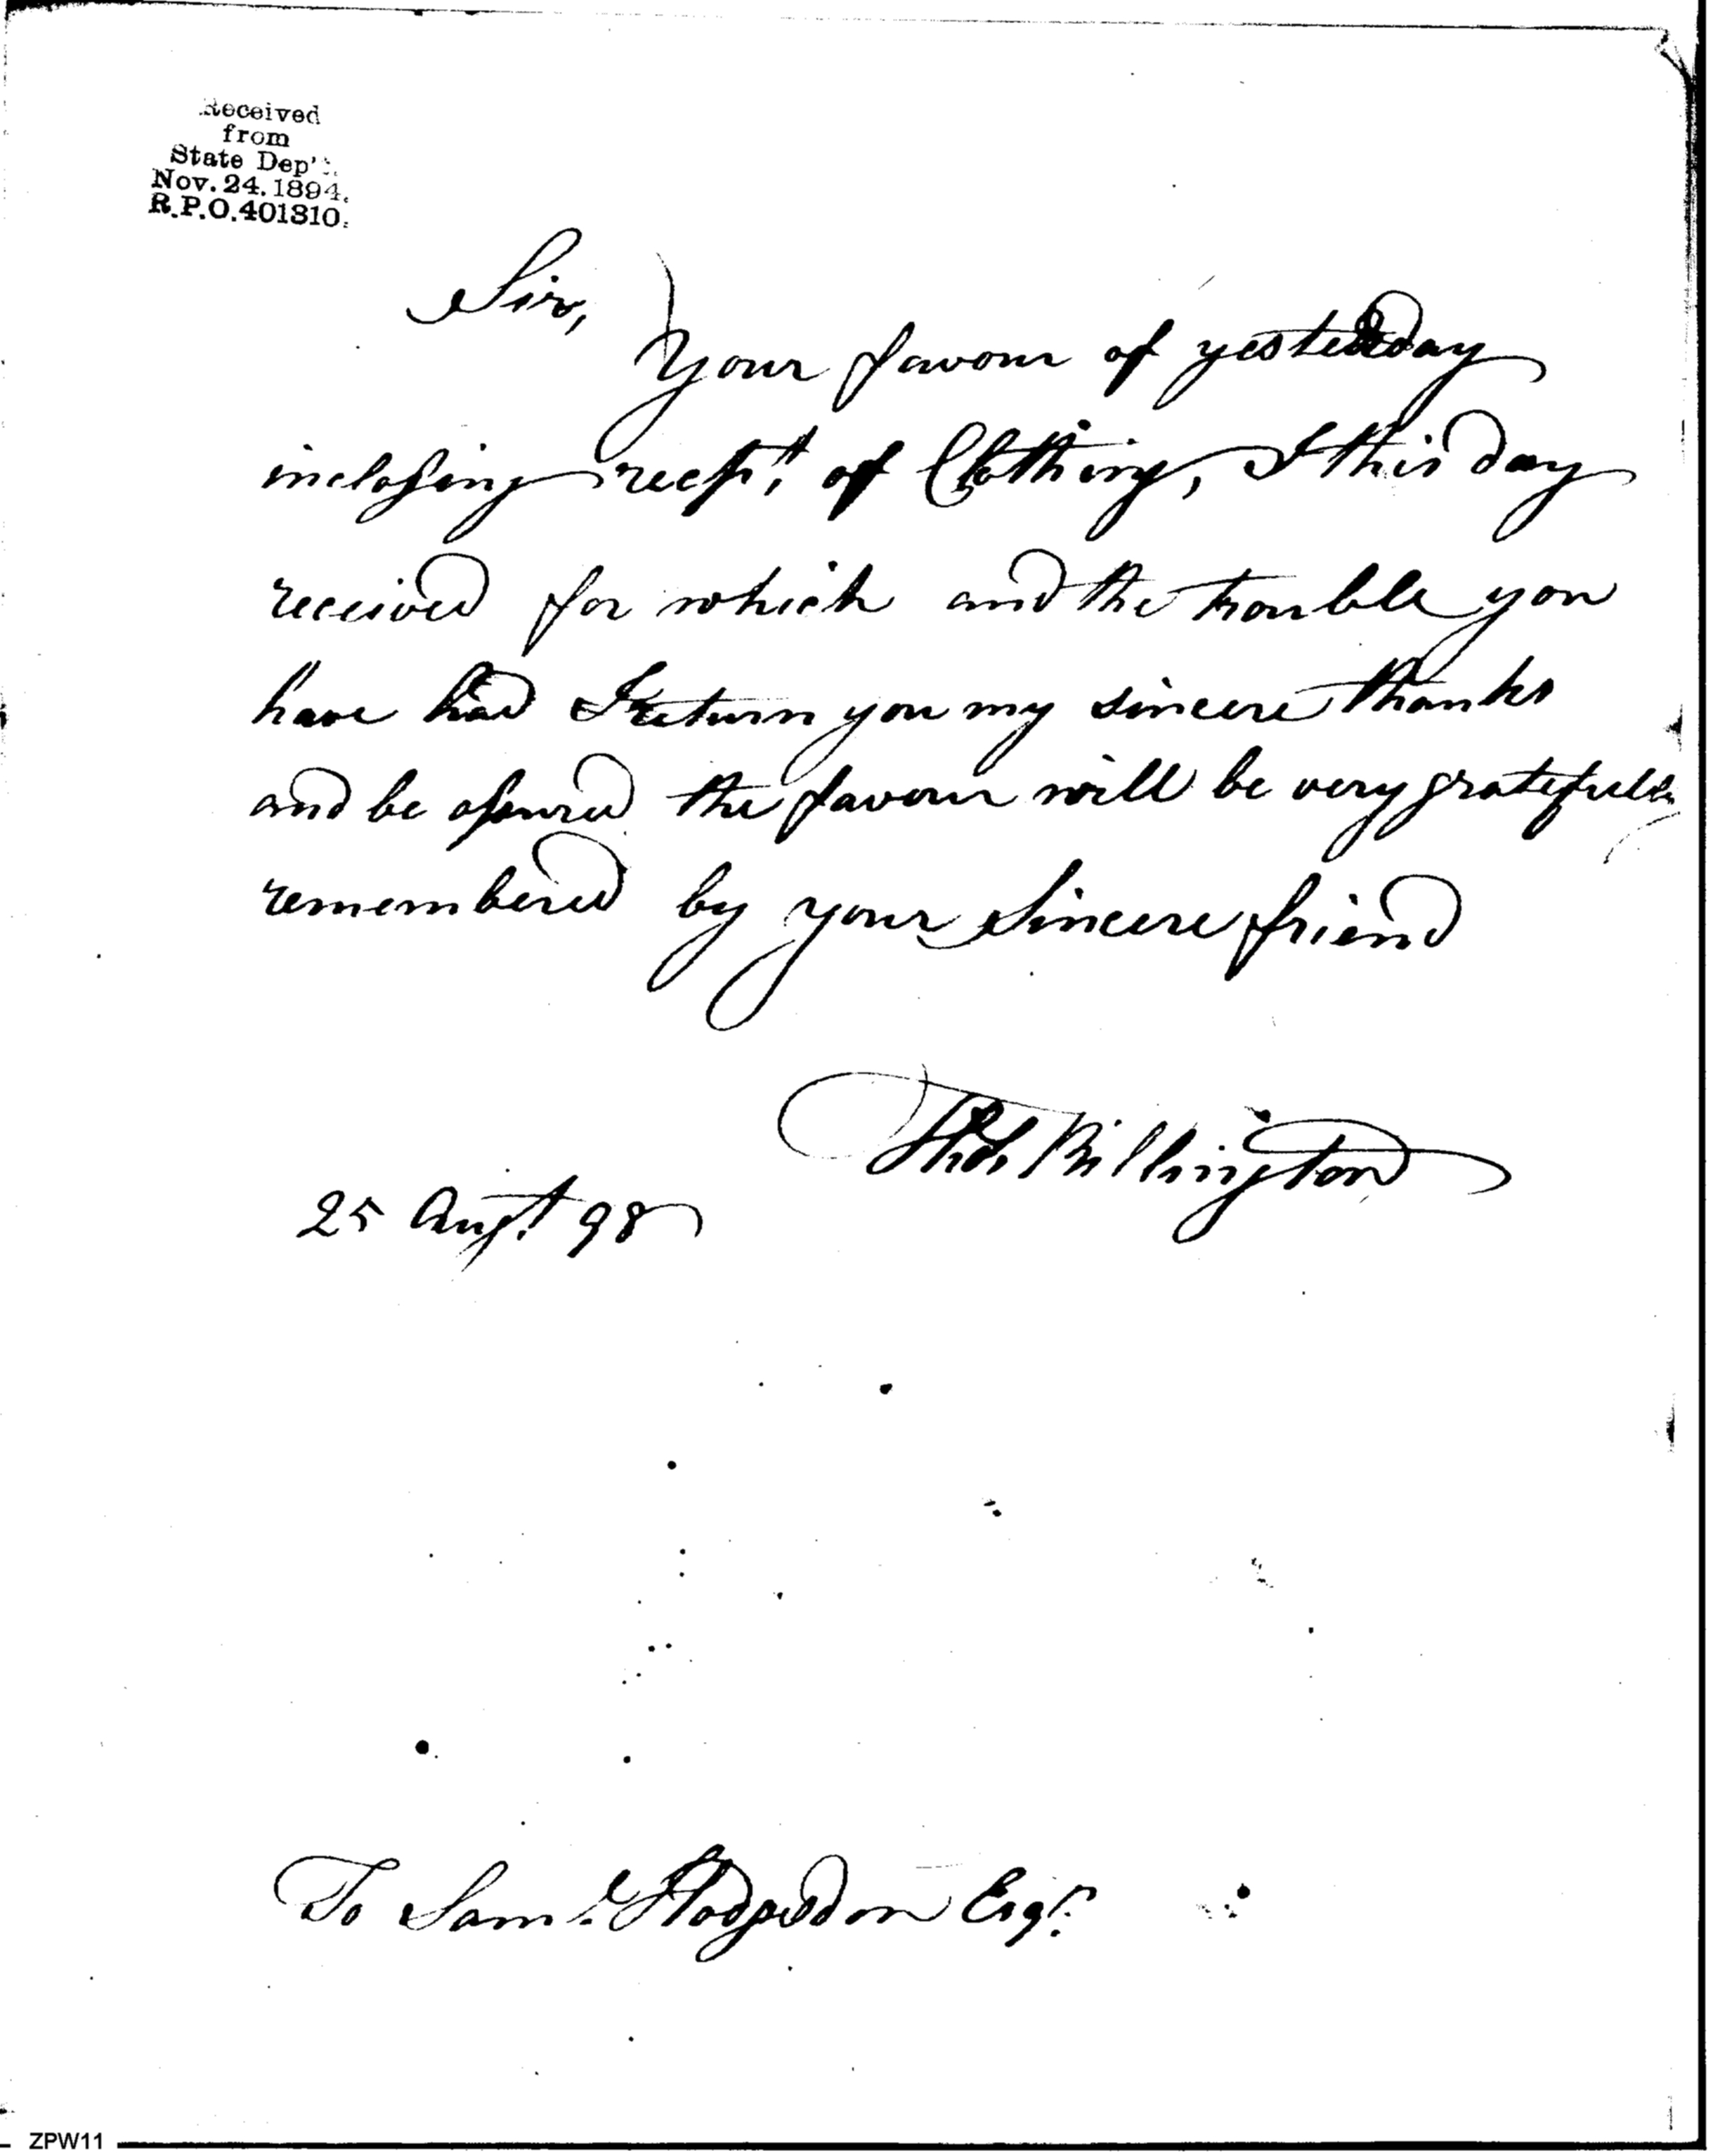 Received
from
State Dep't.
Nov. 24. 1894.
R.P.O. 401310.
Sir,
Your favour of yesterday
inclosing recpt. of Clothing, I this day
received for which and the trouble you
have had I return you my sincere thanks
and be assured the favour will be very gratefully
remembered by your sincere friend
Thos Billington
25 Augt. 98
To Saml. Hodgsdon Esqr.
ZPW11